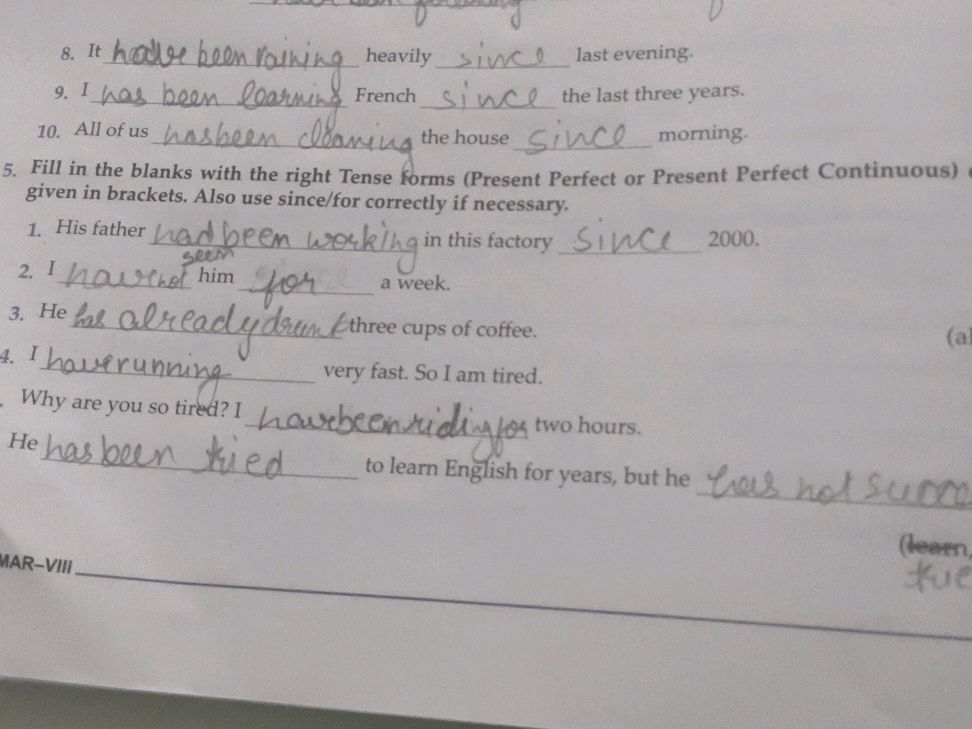 8. It have been raining heavily since last evening.
9. I has been learning French since the last three years.
10. All of us has been cleaning the house since morning.
5. Fill in the blanks with the right Tense forms (Present Perfect or Present Perfect Continuous)
given in brackets. Also use since/for correctly if necessary.
1. His father had been working in this factory since 2000.
seen
2. I have not him for a week.
3. He has already drunk three cups of coffee.
(al
4. I have running very fast. So I am tired.
Why are you so tired? I have been riding for two hours.
He has been tried to learn English for years, but he has not
(learn,
MAR–VIII